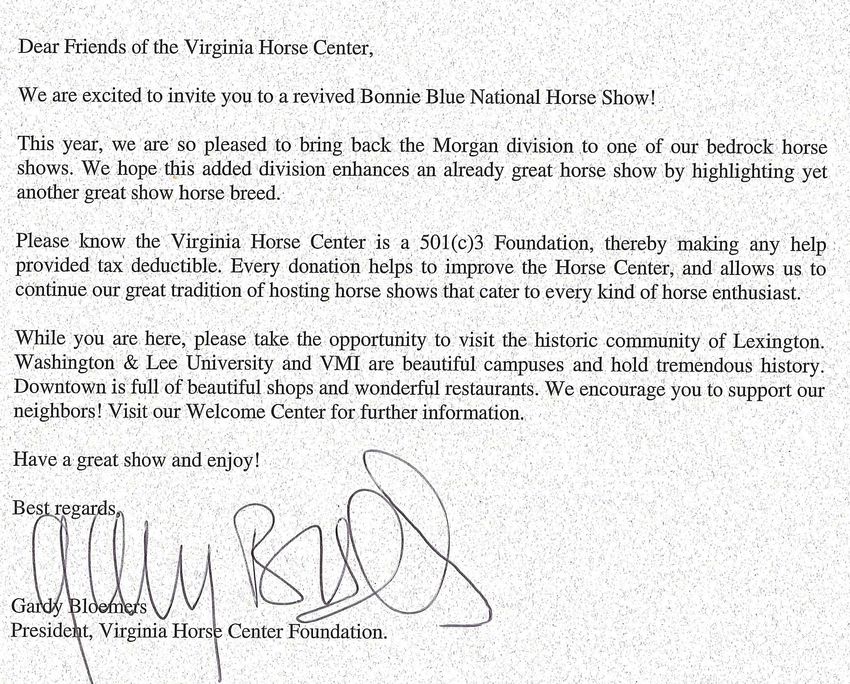 Dear Friends of the Virginia Horse Center,
We are excited to invite you to a revived Bonnie Blue National Horse Show!
This year, we are so pleased to bring back the Morgan division to one of our bedrock horse
shows. We hope this added division enhances an already great horse show by highlighting yet
another great show horse breed.
Please know the Virginia Horse Center is a 501(c)3 Foundation, thereby making any help
provided tax deductible. Every donation helps to improve the Horse Center, and allows us to
continue our great tradition of hosting horse shows that cater to every kind of horse enthusiast.
While you are here, please take the opportunity to visit the historic community of Lexington.
Washington & Lee University and VMI are beautiful campuses and hold tremendous history.
Downtown is full of beautiful shops and wonderful restaurants. We encourage you to support our
neighbors! Visit our Welcome Center for further information.
Have a great show and enjoy!
Best regards,
Gardy Bloemers
President, Virginia Horse Center Foundation.